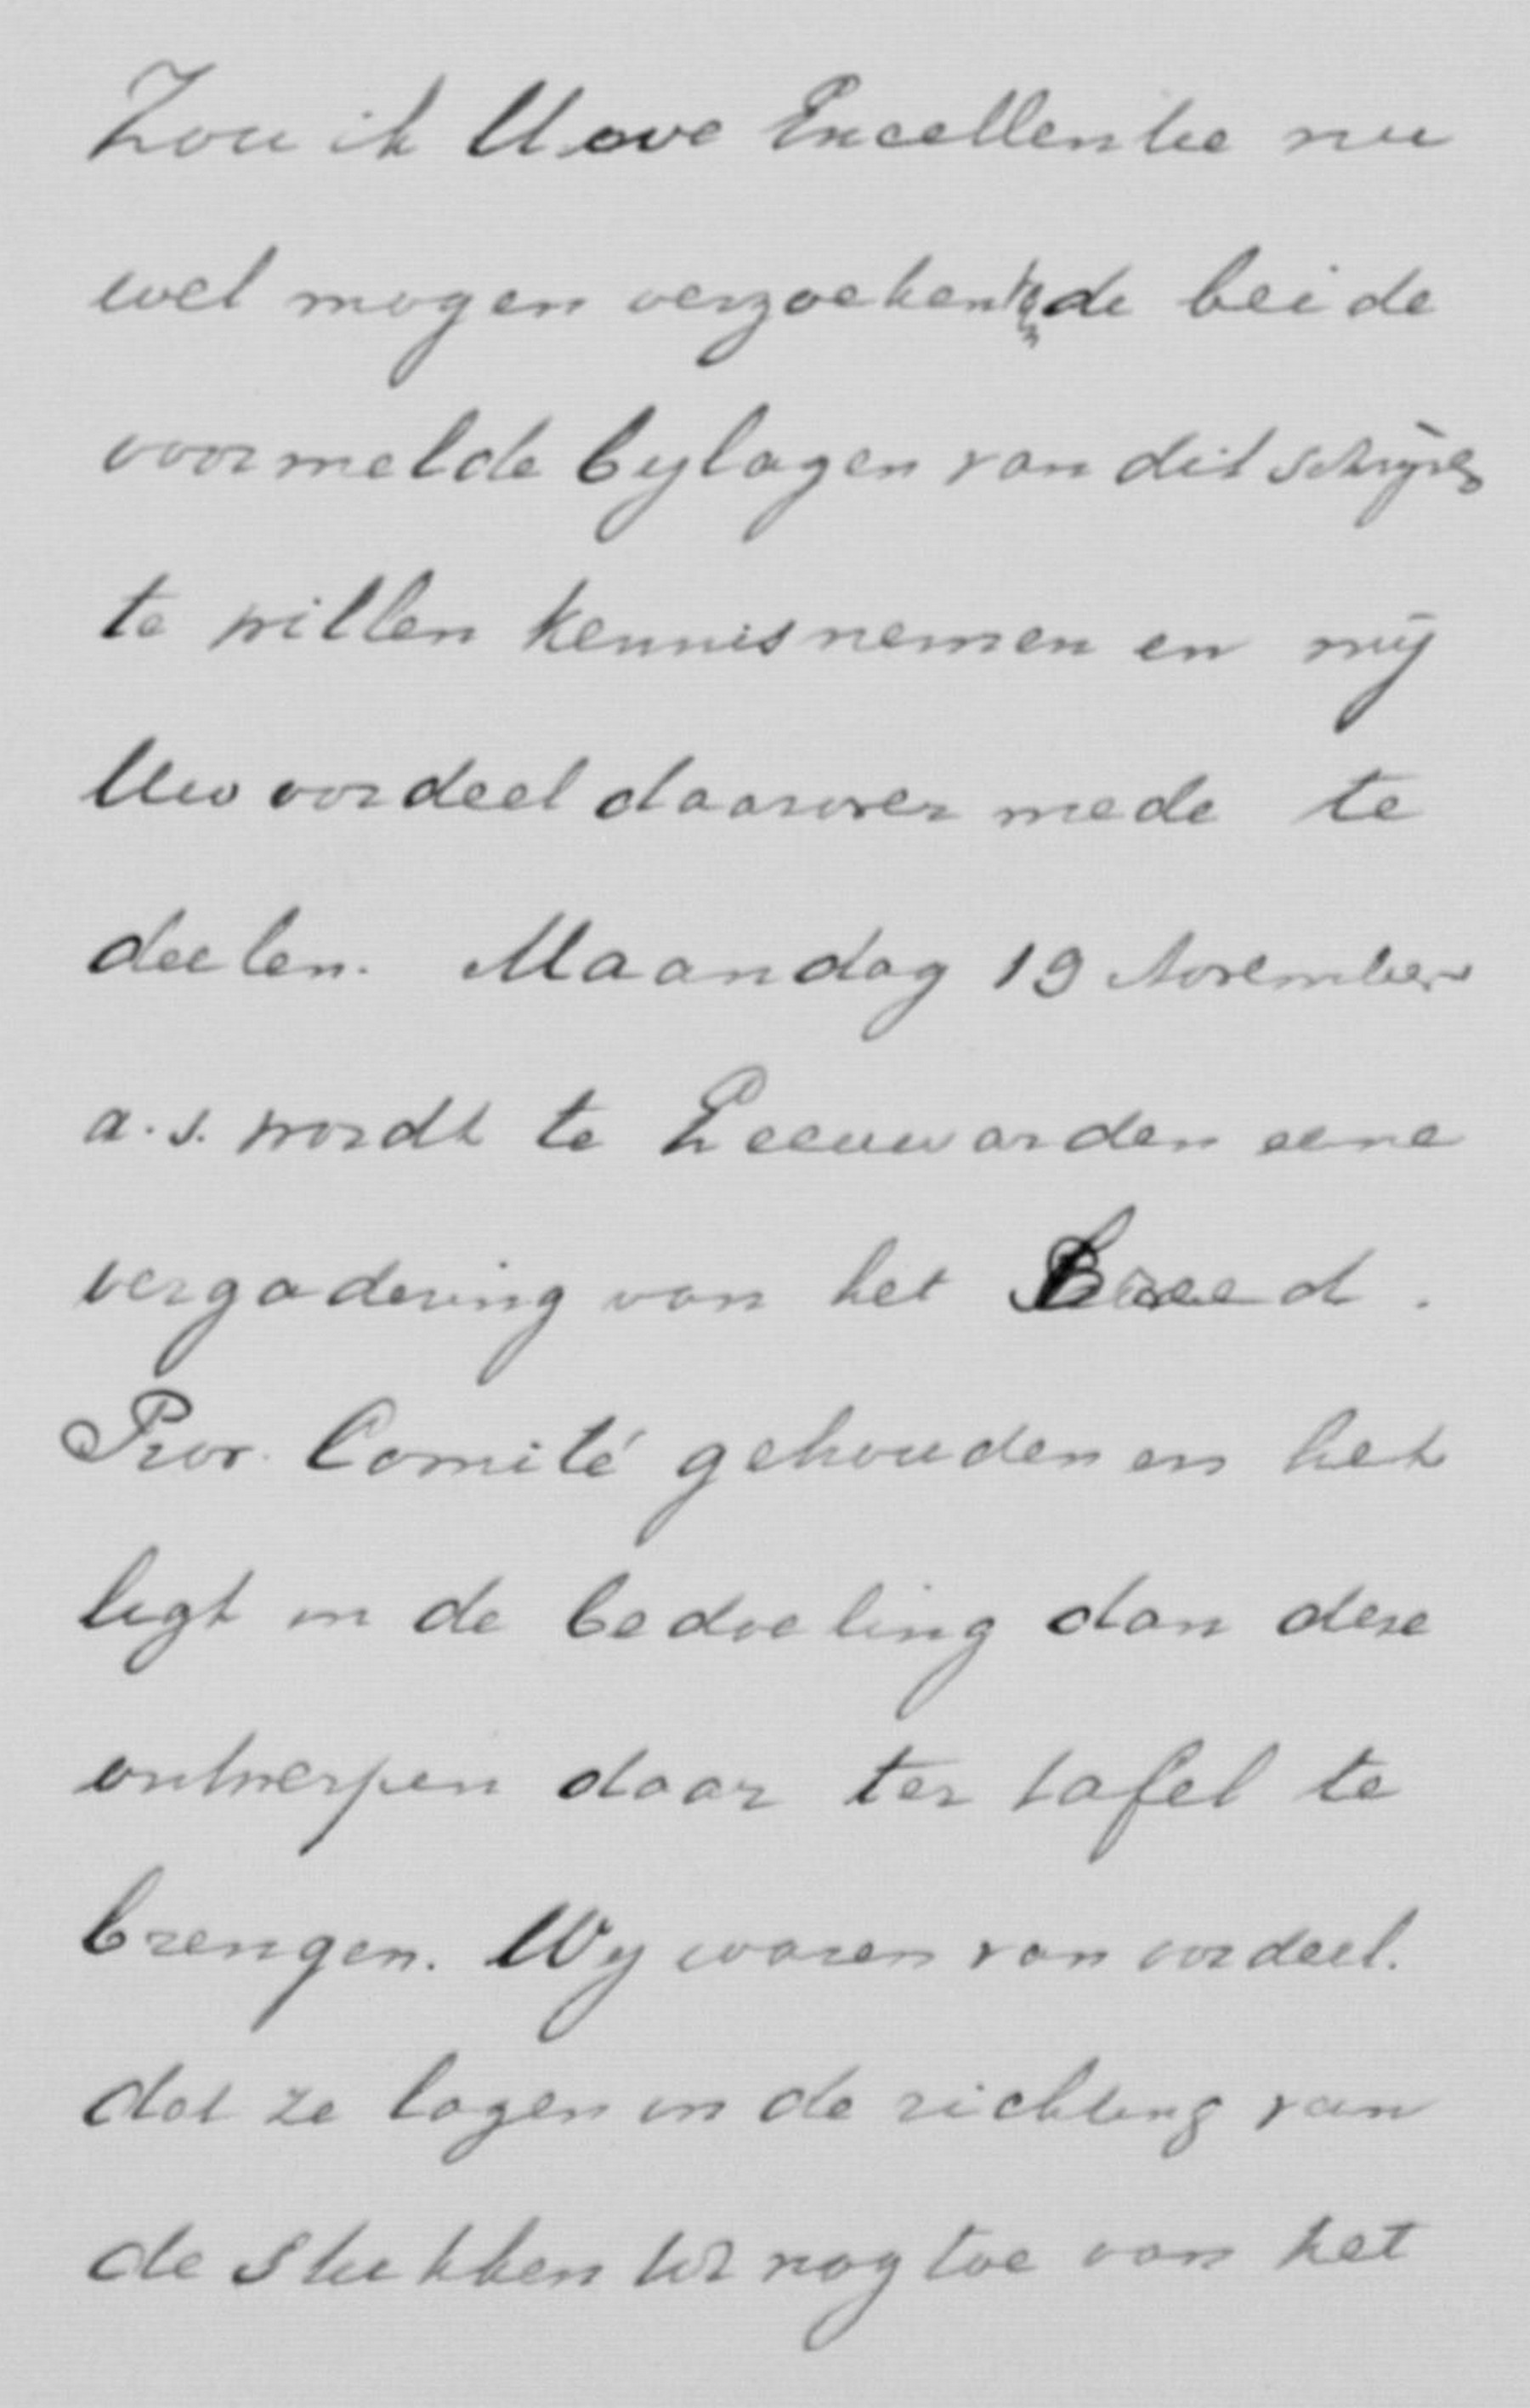 Zou ik Uwe Excellentie nu
wel mogen verzoeken de beide
voormelde bylagen van dit schrijven
te willen kennisnemen en mij
Uw oordeel daarover mede te
deelen. Maandag 19 November
a.s. wordt te Leeuwarden eene
vergadering van het Breed.
Prov. Comité gehouden en het
ligt in de bedoeling dan deze
ontwerpen daar ter tafel te
brengen. Wy waren van oordeel.
dat ze lagen in de richting van
de stukken tot nog toe van het